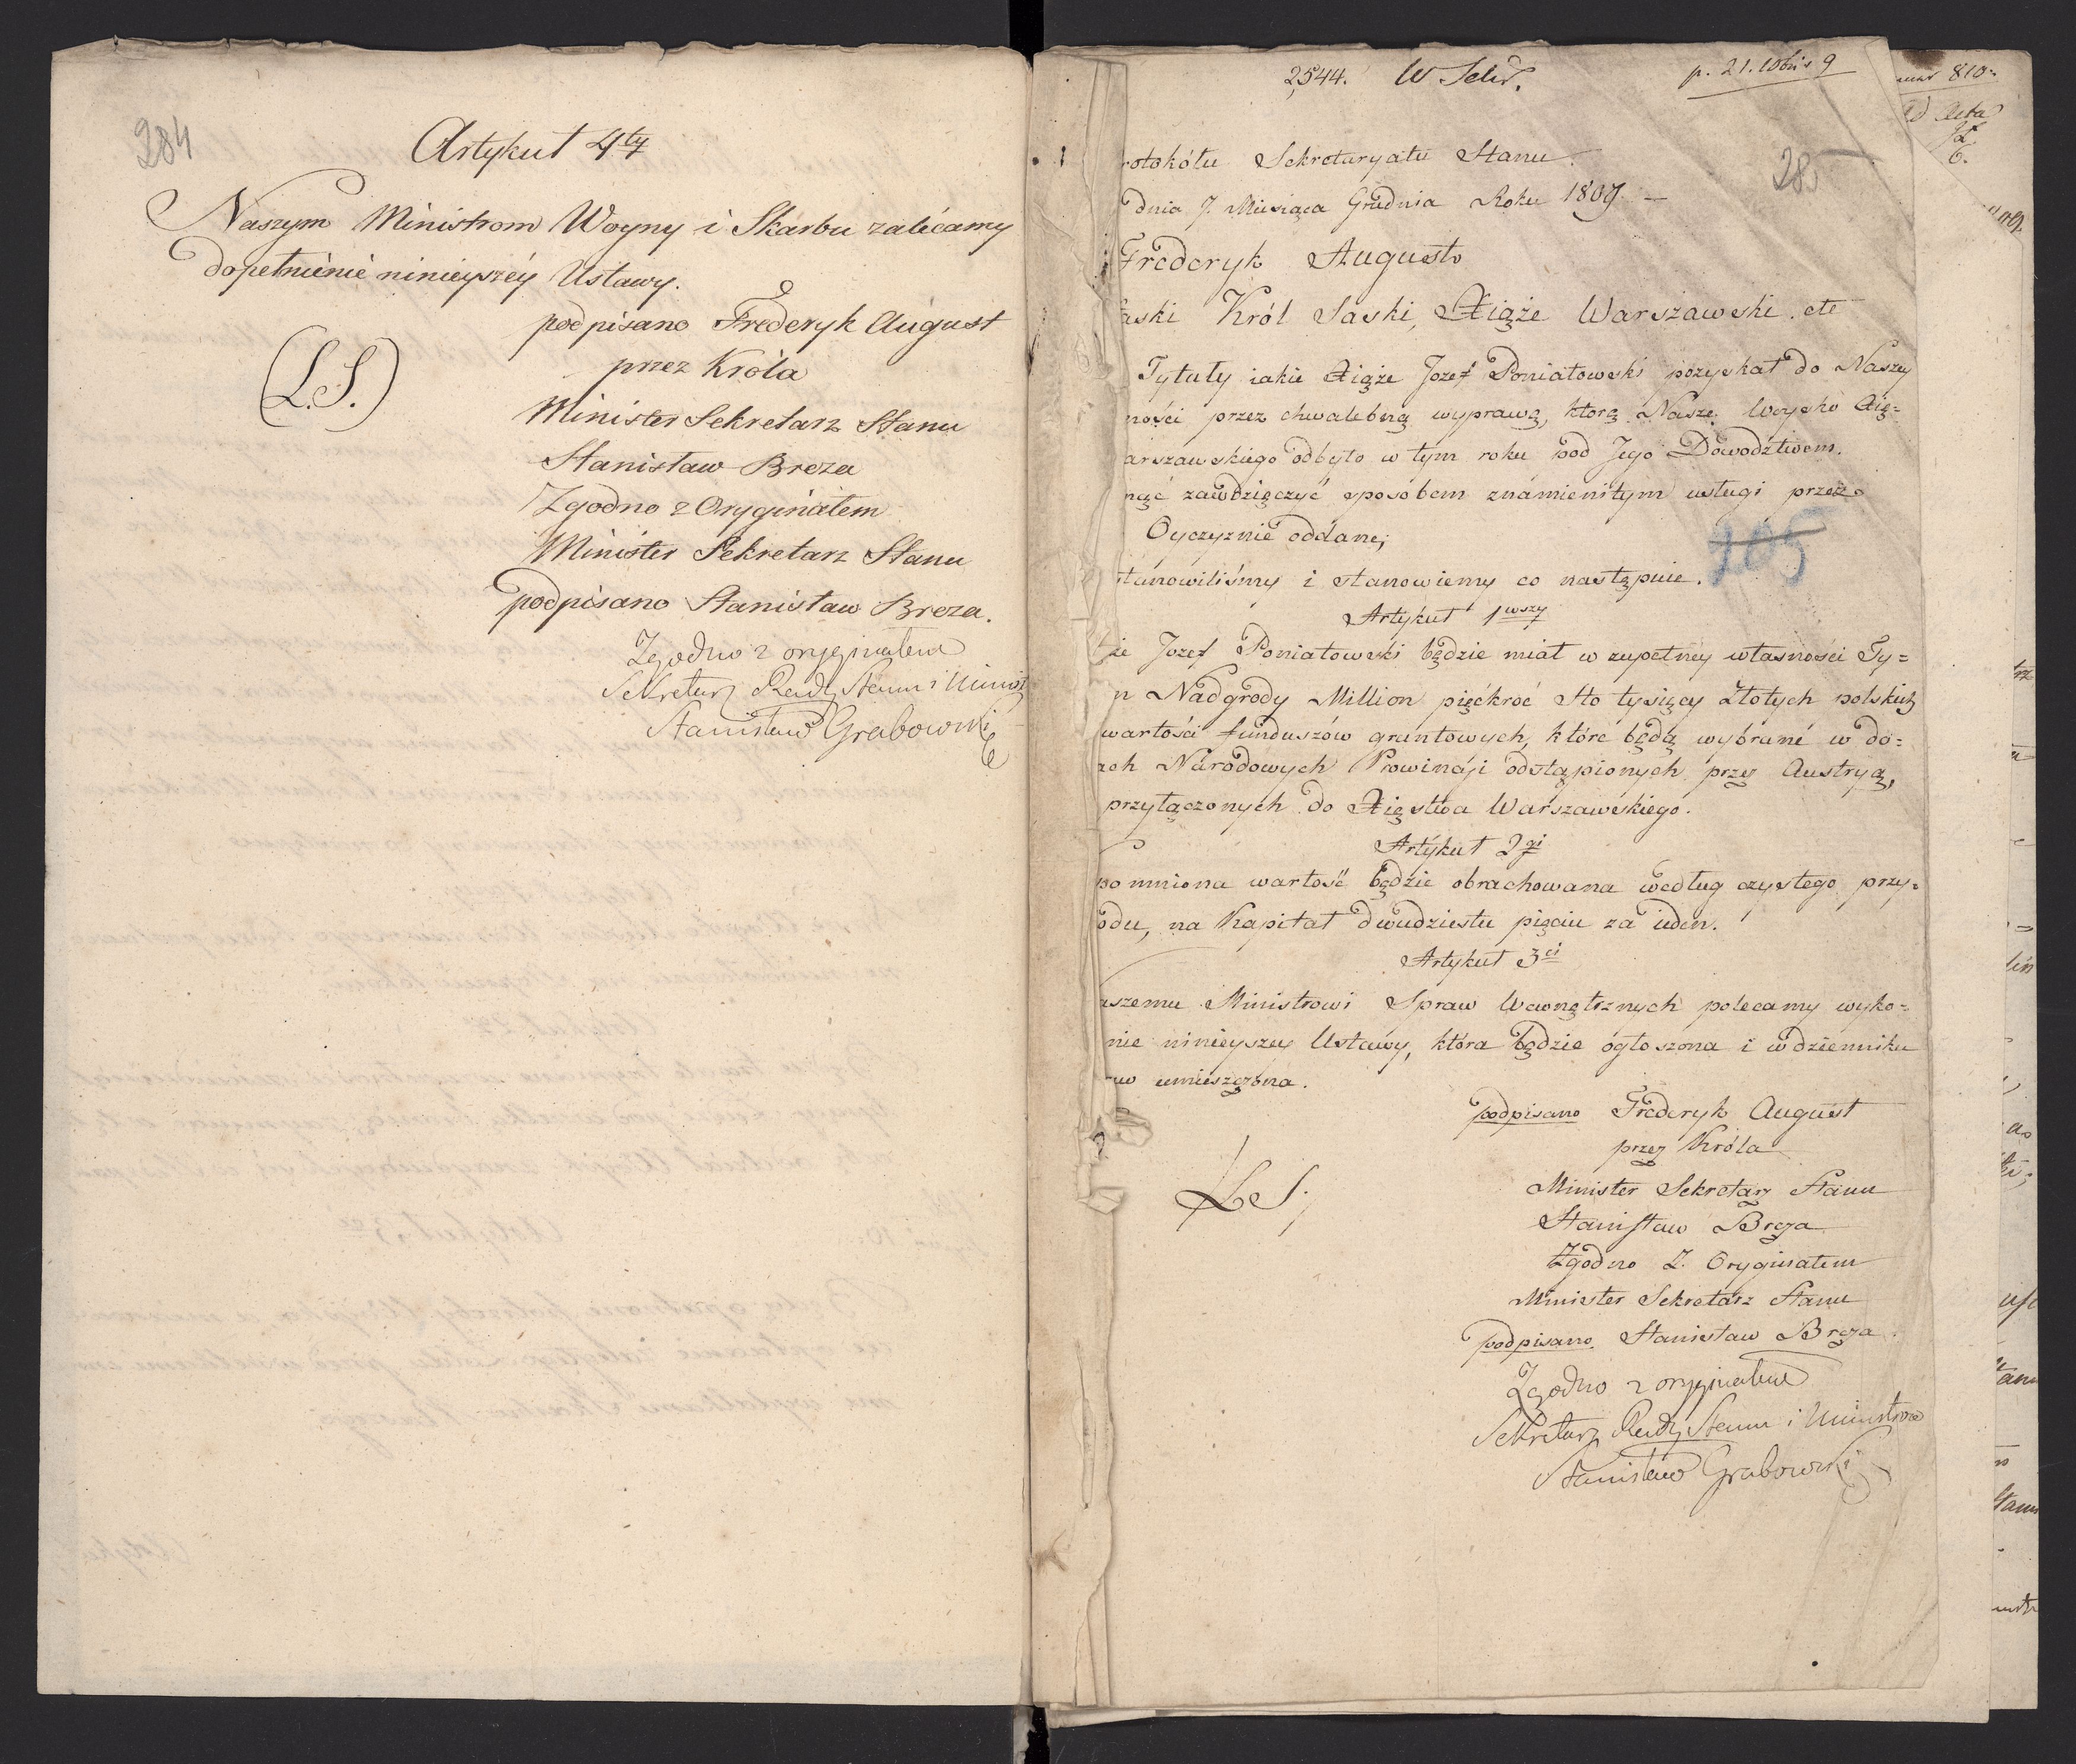 284
Artykuł 4ty
Naszym Ministrom Woyny i Skarbu zalécamy
dopełniénié ninieyszéy Ustawy.
podpisano Fréderyk August
(L.S.)
przez Króla
Minister Sekretarz Stanu
Stanisław Breza
Zgodno z Oryginałem
Minister Sekretarz Stanu
podpisano Stanisław Breza.
Zgodno z oryginałem
Sekretarz Rady Stanu i Minist
Stanisław Grabowski
2544. W
p. 21. 10bris 9
285
rotokółu Sekretaryatu Stanu.
dnia 7. Miesiąca Grudnia Roku 1809. —
Frederyk August
aski Król Saski, Xiąże Warszawski. etc
Tytuły iakie Xiąże Jozef Poniatowski pozyskał do Naszey
ności przez chwalebną wyprawą, którą Nasze Woysko Xię=
arszawskiego odbyło w tym roku pod Jego Dowodztwem.
nąć zawdzięczyć sposobem znamienitym usługi przez
Oyczyznie oddane;
205
stanowiliśmy i stanowiemy co następuie.
Artykuł 1wszy
że Jozef Poniatowski będzie miał w zupełney własności Ty=
n Nadgrody Million pięćkroć sto tysięcy Złotych polskich
wartości funduszów gruntowych, które będą wybrané w do=
rach Narodowych Prowincyi odstąpionych przez Austryą,
przyłączonych do Xięstwa Warszawskiego.
Artykuł 2gi
pomniona wartość będzie obrachowana według czystego przy=
odu, na Kapitał dwudziestu pięciu za ieden.
Artykuł 3ci
aszemu Ministrowi Spraw Wewnętrznych polecamy wyko=
nie ninieyszey Ustawy, która będzie ogłoszona i w dzienniku
aw umieszczona.
podpisano Frederyk August
przez Króla
Minister Sekretarz Stanu
L S.
Stanisław Breza
Zgodno Z. Oryginałem
Minister Sekretarz Stanu
podpisano. Stanisław Breza.
Zgodno z oryginałem
Sekretarz Rady Stanu i Ministrow
Stanisław Grabowski
810.